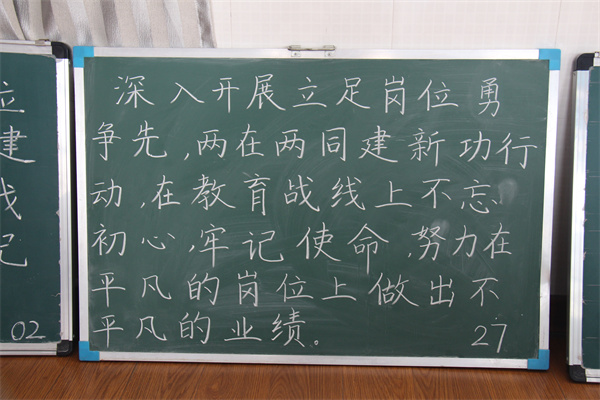 深入开展立足岗位勇
争先,两在两同建新功行
动,在教育战线上不忘
初心,牢记使命,努力在
平凡的岗位上做出不
平凡的业绩。
27
02